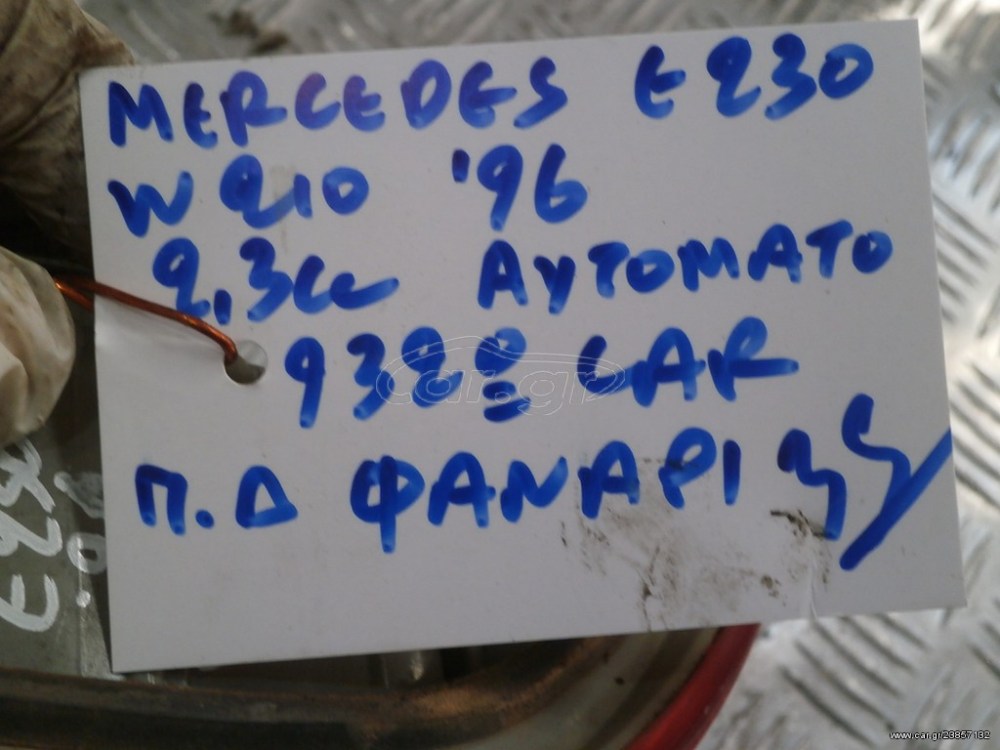 MERCEDES E230
W210 '96
2,3cc ΑΥΤΟΜΑΤΟ
932º CAR
Π.Δ ΦΑΝΑΡΙ
car.gr
www.car.gr/23857132